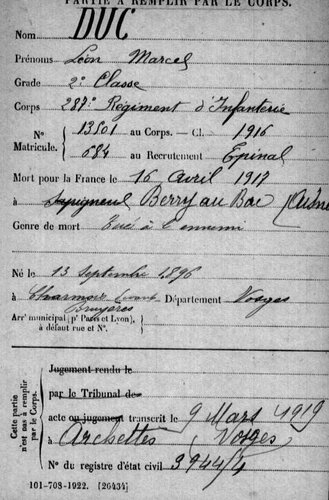 PARTIE A REMPLIR PAR LE CORPS.
Nom DUC
Prénoms Léon Marcel
Grade 2e Classe
Corps 287e Régiment d'Infanterie
N° 13501 au Corps. — Cl. 1916
Matricule. 684 au Recrutement Epinal
Mort pour la France le 16 avril 1917
à Sapigneul Berry au Bac (Aisne
Genre de mort Tué à l'ennemi
Né le 13 Septembre 1896
à Charmois devant Bruyères Département Vosges
Arrt municipal (pr Paris et Lyon), à défaut rue et N°.
Cette partie n'est pas à remplir par le Corps.
Jugement rendu le
par le Tribunal de
acte ou jugement transcrit le 9 Mars 1919
à Archettes Vosges
N° du registre d'état civil 3944/4
101-708-1922. [26434]